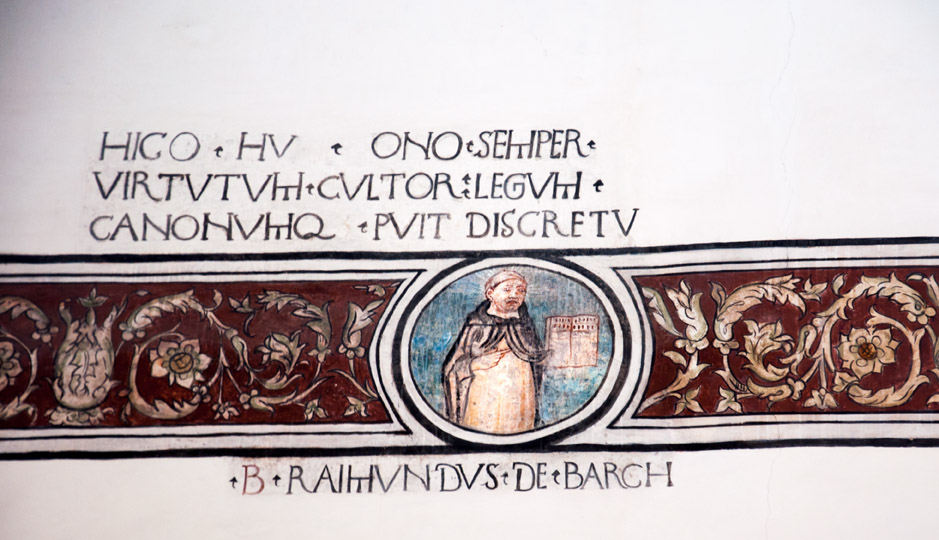 HICO · HV · ONO · SEMPER ·
VIRTVTVM · CVLTOR : LEGVM ·
CANONVMQ · PVIT DISCRETV
· B · RAIMVNDVS · DE · BARCH